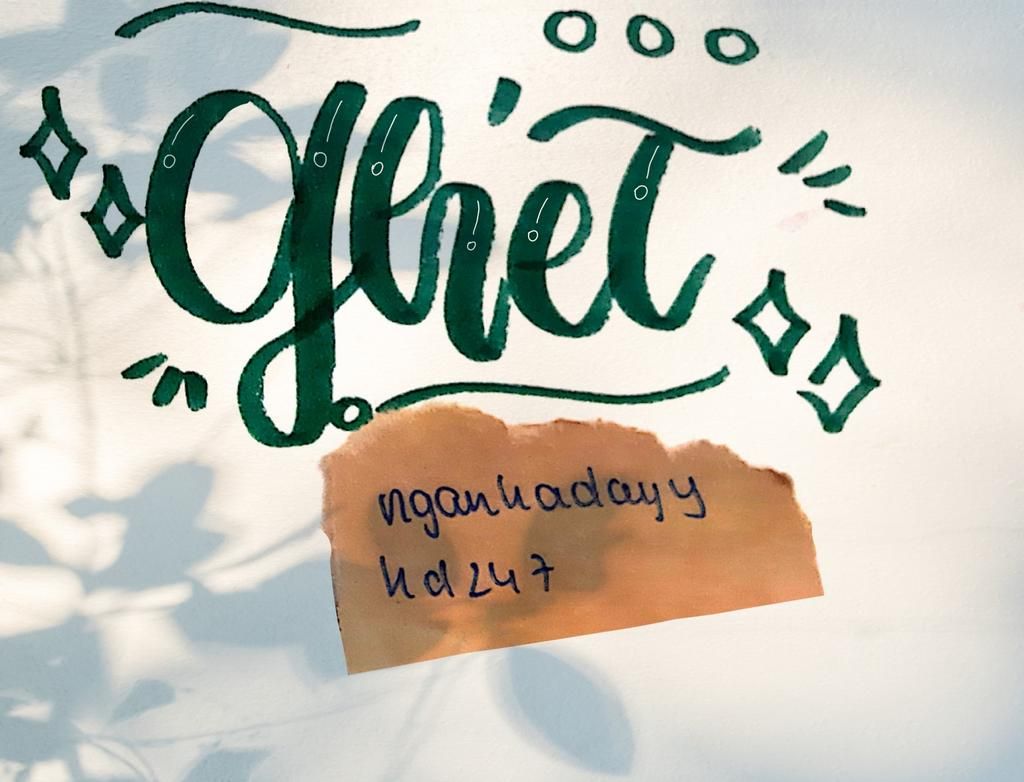 ghét
nganhadayy
hd247